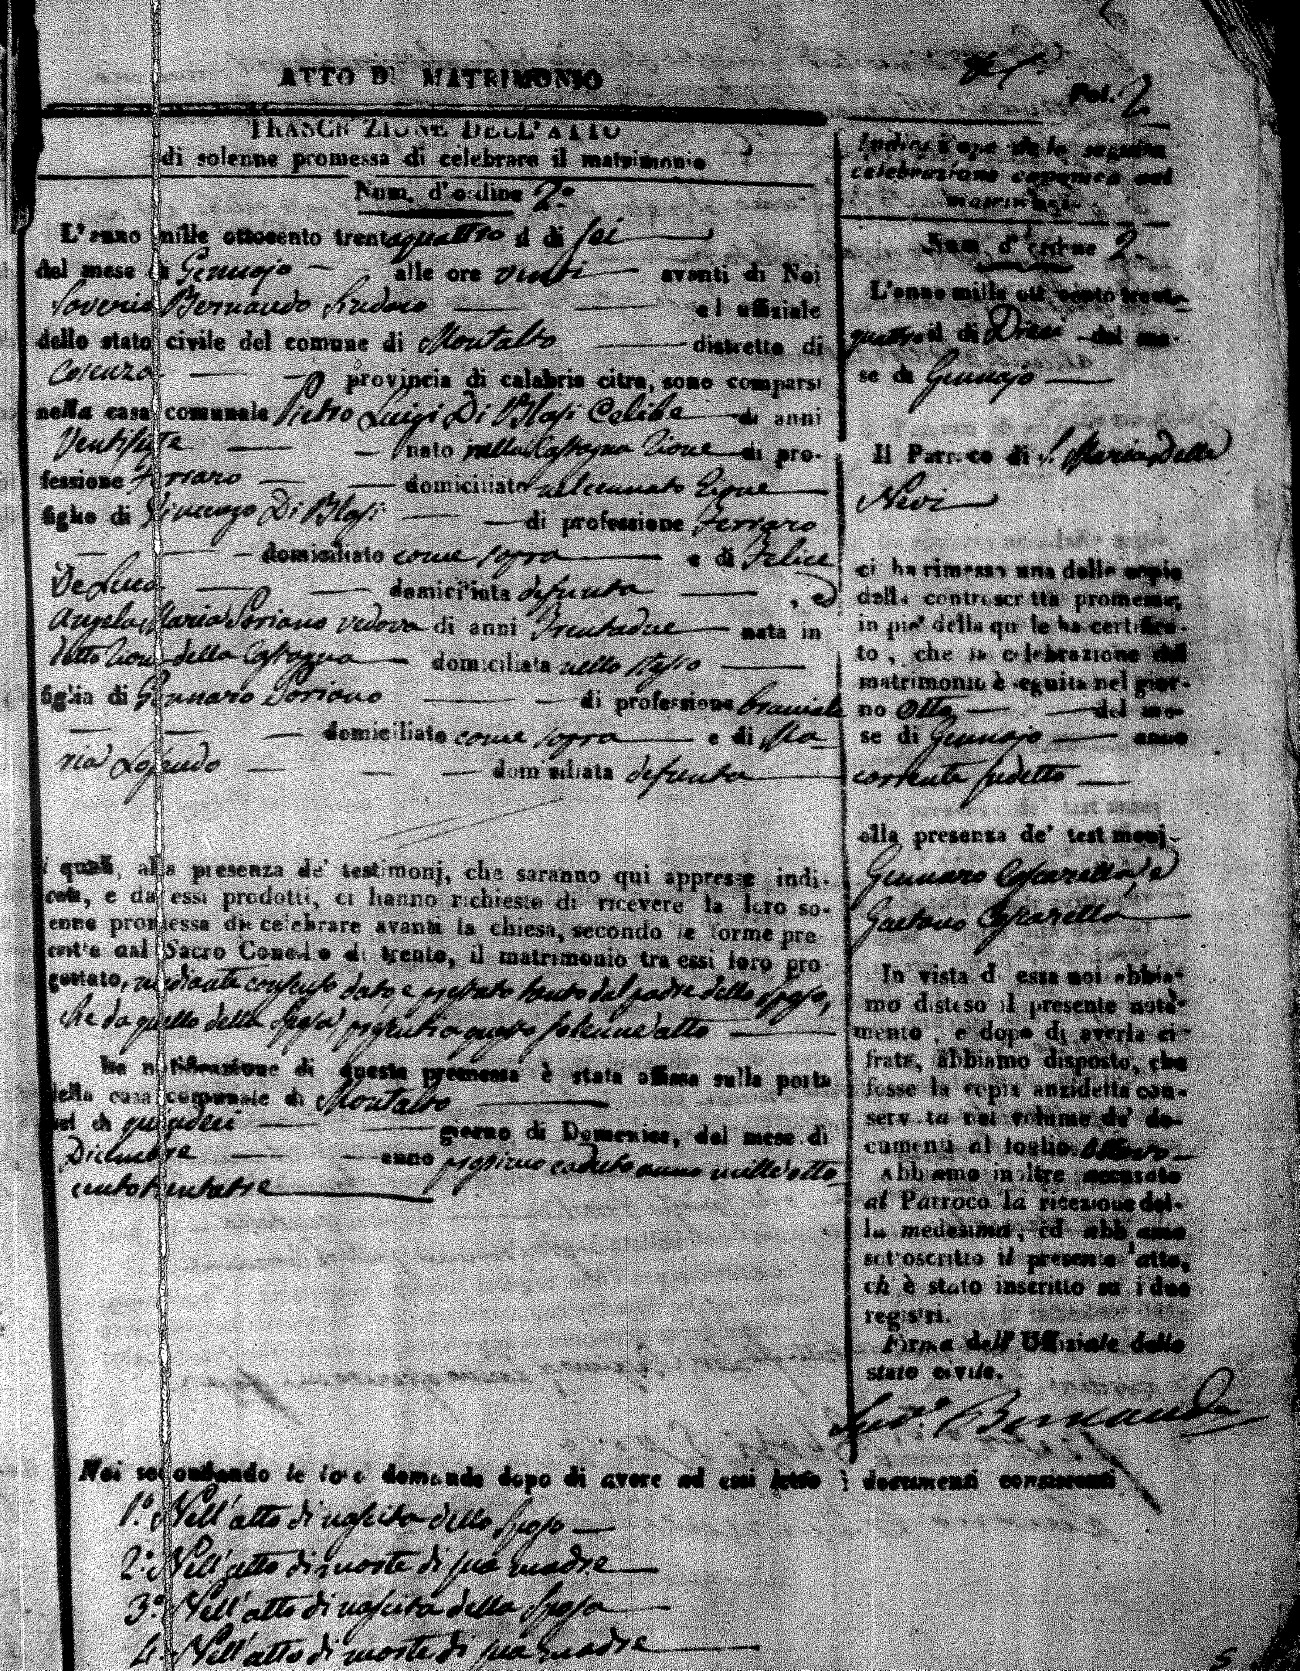 ATTO DI MATRIMONIO
Fol. 2
TRASCRIZIONE DELL'ATTO
di solenne promessa di celebrare il matrimonio
Num. d'ordine 2.º
L'anno mille ottocento trentaquattro il di sei
del mese di Gennajo alle ore venti avanti di Noi
Saverio Bernaudo Sindaco ed uffiziale
dello stato civile del comune di Montalto distretto di
Cosenza provincia di calabria citra, sono comparsi
nella casa comunale Pietro Luigi Di Blasi Celibe di anni
Ventisette nato nella Castagna Rione di pro-
fessione Ferraro domiciliato nel cennato Rione
figlio di Vincenzo Di Blasi di professione Ferraro
domiciliato come sopra e di Felice
De Luca domiciliata defunta , ed
Angela Maria Soriano vedova di anni Trentadue nata in
detto Rione della Castagna domiciliata nello stesso
figlia di Gennaro Soriano di professione bracciale
domiciliato come sopra e di Ma
ria domiciliata defunta
i quali, alla presenza de' testimonj, che saranno qui appresso indi-
cati, e da essi prodotti, ci hanno richiesto di ricevere la loro so-
enne promessa di celebrare avanti la chiesa, secondo le forme pre
critte dal Sacro Concilio di trento, il matrimonio tra essi loro pro-
gettato, mediante consenso dato e prestato tanto dal padre dello sposo,
che da quello della sposa presenti a questo solenne atto
La notificazione di questa promessa è stata affissa sulla porta
della casa comunale di Montalto
nel di quindeci giorno di Domenica, del mese di
Dicembre anno prossimo caduto anno mille otto
cento trentatre
Indicazione della seguita
celebrazione canonica del
matrimonio.
Num. d'ordine 2.
L'anno mille ott'cento trenta-
quattro il di Dieci del me-
se di Gennajo
Il Parroco di S. Maria della
Nevi
ci ha rimesso una delle copie
della controscritta promessa,
in piè della quale ha certifica-
to, che la celebrazione del
matrimonio è seguita nel gior-
no Otto del me-
se di Gennajo anno
corrente sudetto
alla presenza de' testimonj
Gennaro e
Gaetano
In vista di essa noi abbia-
mo disteso il presente notà-
mento, e dopo di averla ci-
frata, abbiamo disposto, che
fosse la copia anzidetta con-
servata nel volume de' do-
cumenti al foglio Ottavo
Abbiamo inoltre accusato
al Parroco la ricezione del-
la medesima, ed abbiamo
sottoscritto il presente atto,
ch'è stato inscritto su i due
registri.
Firma dell'Uffiziale dello
stato civile.
Sav.º Bernaudo
Noi secondando le loro domande dopo di avere ad essi letto i documenti consistenti
1.º Nell'atto di nascita dello sposo
2.º Nell'atto di morte di sua madre
3.º Nell'atto di nascita della sposa
4. Nell'atto di morte di sua madre